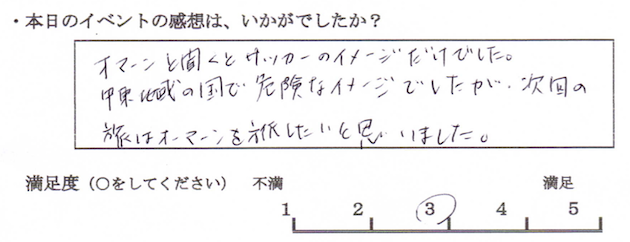 ・本日のイベントの感想は、いかがでしたか？
オマーンと聞くとサッカーのイメージだけでした。
中東地域の国で危険なイメージでしたが、次回の
旅はオマーンを旅したいと思いました。
満足度（○をしてください） 不満 満足
1 2 3 4 5